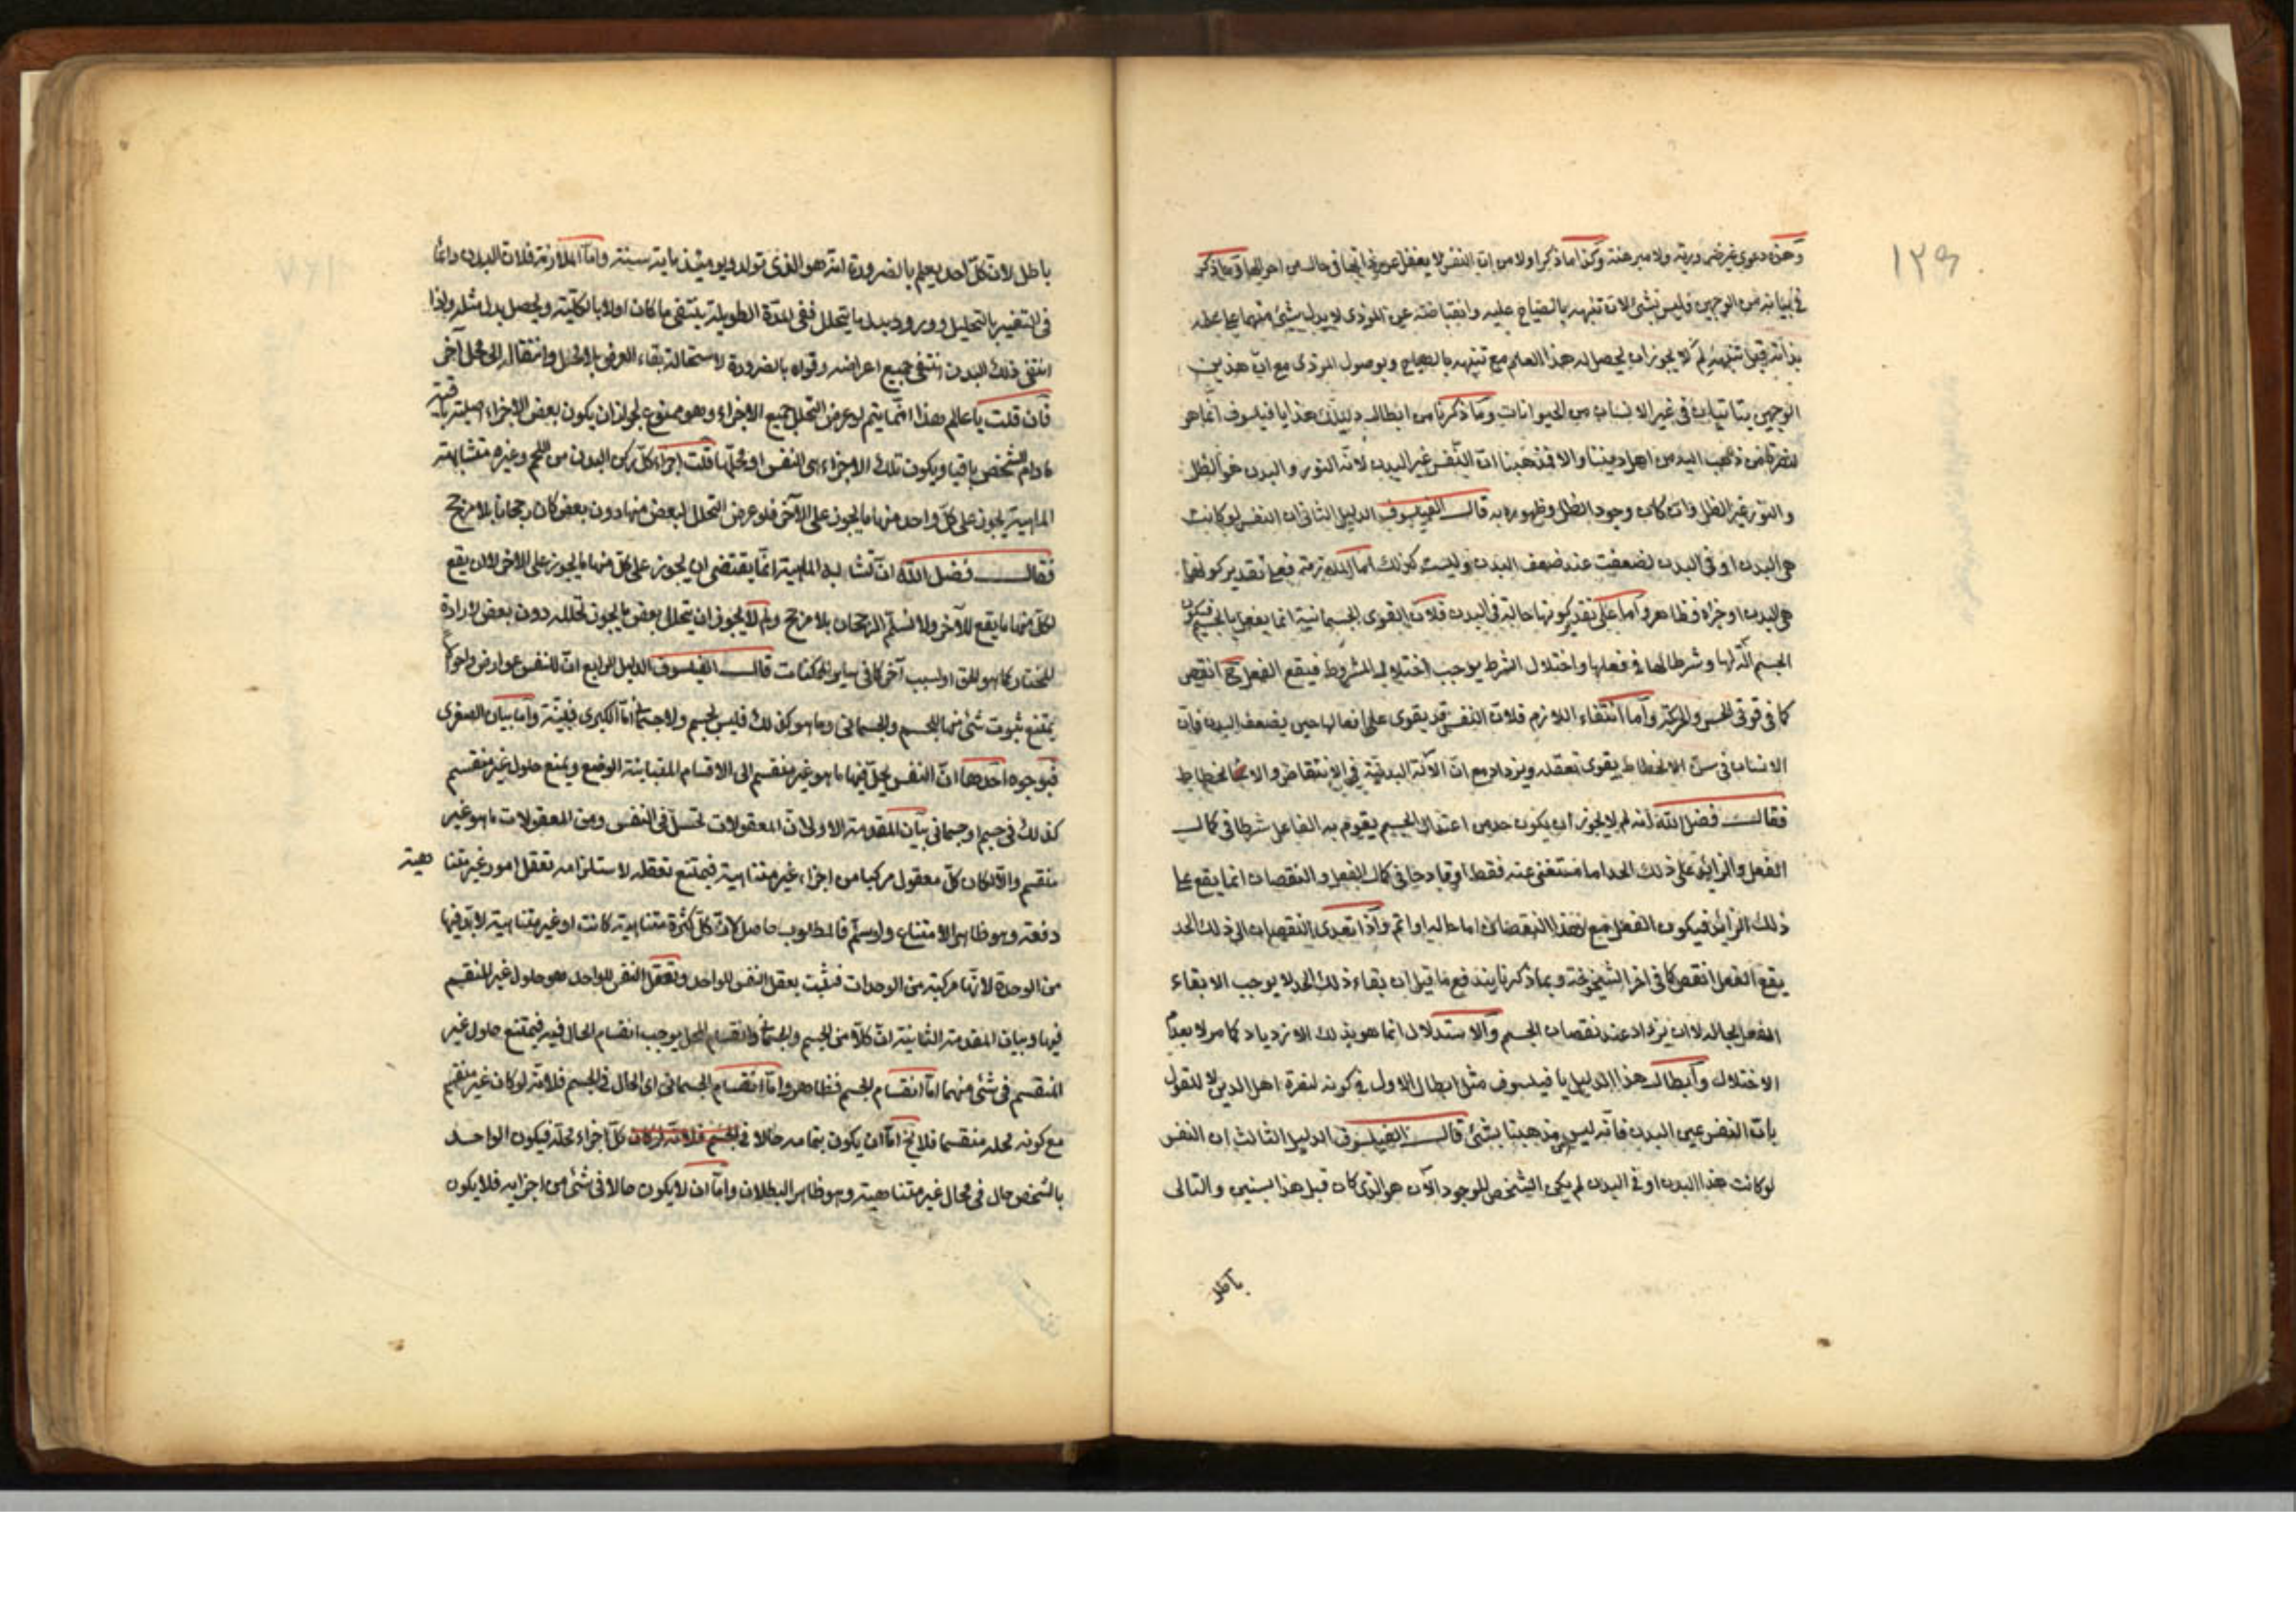 ١٣٩
وهذه دعوى غير ضرورية ولا مبرهنة وكذا ما ذكر اولا من ان النفس لا يغفل عن في حال من احوالها وما ذكر
في بيانه من الوجهين فليس بشئ لان تنبهه بالصياح عليه وانقباضه عن الموذى لا يدل شئ منهما على علمه
بذاته قبل تنبهه لم لا يجوز ان يحصل له هذا العلم مع تنبهه بالصياح وبوصول الموذى مع ان هذين
الوجهين يتاتيان في غير الانسان من الحيوانات وما ذكرنا من ابطال دليلك هذا يا فيلسوف انما هو
لنصرة من ذهب اليه من اهل ديننا والا فمذهبنا ان النفس غير البدن لانه النور والبدن هو الظل
والنور غير الظل وان كان وجود الظل وظهوره به قال الفيلسوف الدليل الثانى ان النفس لو كانت
هى البدن او في البدن لضعفت عند ضعف البدن وليست كذلك اما الملازمة فعلى تقدير كونها
هى البدن او جزاه فظاهر واما على تقدير كونها حالة في البدن فلان القوى الجسمانية انما يفعل بالجسم فيكون
الجسم آلة لها وشرطا لها في فعلها واختلال الشرط يوجب اختلال المشروط فيقع الفعل ح انقص
كما في قوتى الحس والحركة واما انتفاء اللازم فلان النفس قد يقوى على افعالها حين يضعف البدن فان
الانسان في سن الانحطاط يقوى تعقله ويزداد مع ان الآلة البدنية في الانتقاص والانحطاط
فقال فضل الله انه لم لا يجوز ان يكون حد من اعتدال الجسم يقوم به الفاعل شرطا في كمال
الفعل والزائد على ذلك الحد اما مستغنى عنه فقط او قادحا في كمال الفعل والنقصان انما يقع على
ذلك الزائد فيكون الفعل مع هذا النقصان اما حاله او اتم واذا تعدى النقصان الى ذلك الحد
يقع الفعل انقص كما في اخر الشيخوخة وبما ذكرنا يندفع ما قيل ان بقاء ذلك الحد لا يوجب الا بقاء
الفعل بحاله لا ان يزداد عند نقصان الجسم والاستدلال انما هو بذلك الازدياد كما مر لا بعدم
الاختلال وابطال هذا الدليل يا فيلسوف مثل ابطال الاول في كونه لنصرة اهل الدين لا للقول
بان النفس عين البدن فانه ليس من مذهبنا بشئ قال الفيلسوف الدليل الثالث ان النفس
لو كانت هذا البدن او في البدن لم يكن الشخص الموجود الآن هو الذى كان قبل هذا بسنين والتالى
باطل
باطل لان كل احد يعلم بالضرورة انه هو الذى تولد ويومئذ ماية سنة واما الملازمة فلان البدن دائما
في التغير بالتحليل وورود بدل ما يتحلل ففى المدة الطويلة ينتفى ما كان اولا بالكلية ويحصل بدل مثله واذا
انتفى ذلك البدن انتفى جميع اعراضه وقواه بالضرورة لاستحالة بقاء العرض بلا محل وانتقاله الى محل آخر
فان قلت يا عالم هذا انما يتم لو عرض التحلل جميع الاجزاء وهو ممنوع لجواز ان يكون بعض الاجزاء اصلية باقية
ما دام الشخص باقيا ويكون تلك الاجزاء هى النفس او محلها قلت اجزاء كل ركن البدن من اللحم وغيره متشابهة
الماهية يجوز على كل واحد منها ما يجوز على الآخر فلو عرض التحلل لبعض منها دون بعض كان رجحانا بلا مرجح
فقال فضل الله ان تشابه الماهية انما يقتضى ان يجوز على كل منها ما يجوز على الاخر لا ان يقع
لكل منها ما يقع للآخر ولا نسلم الرجحان بلا مرجح ولم لا يجوز ان يتحلل بعض ما يجوز تحلله دون بعض لارادة
المختار كما هو الحق او لسبب آخر كما في ساير الممكنات قال الفيلسوف الدليل الرابع ان للنفس عوارض واحوالا
يمتنع ثبوت شئ منها للجسم والجسمانى وما هو كذلك فليس بجسم ولا جسمانى اما الكبرى فبينة واما بيان الصغرى
فبوجوه احدها ان النفس يحل فيها ما هو غير منقسم الى الاقسام المتباينة الوضع ويمنع حلول غير منقسم
كذلك في جسم او جسمانى بيان المقدمة الاولى ان المعقولات تحصل في النفس ومن المعقولات ما هو غير
منقسم والا لكان كل معقول مركبا من اجزاء غير متناهية فيمتنع تعقله لاستلزامه تعقل امور غير متنا هية
دفعة وهو ظاهر الامتناع ولو سلم فالمطلوب حاصل لان كل كثرة متناهية كانت او غير متناهية لا بد فيها
من الوحدة لانها مركبة من الوحدات فثبت تعقل النفس للواحد وتعقل النفس للواحد هو حلول غير المنقسم
فيها وبيان المقدمة الثانية ان كلا من الجسم والجسمانى منقسم وانقسام المحل يوجب انقسام الحال فيه فيمتنع حلول غير
المنقسم في شئ منهما اما انقسام الجسم فظاهر واما انقسام الجسمانى اى الحال في الجسم فلانه لو كان غير منقسم
مع كونه محله منقسما فلا يخ اما ان يكون بتمامه حالا في كل اجزاء محله فيكون الواحد
بالشخص حال في محال غير متناهية وهو ظاهر البطلان واما ان لا يكون حالا في شئ من اجزايه فلا يكون